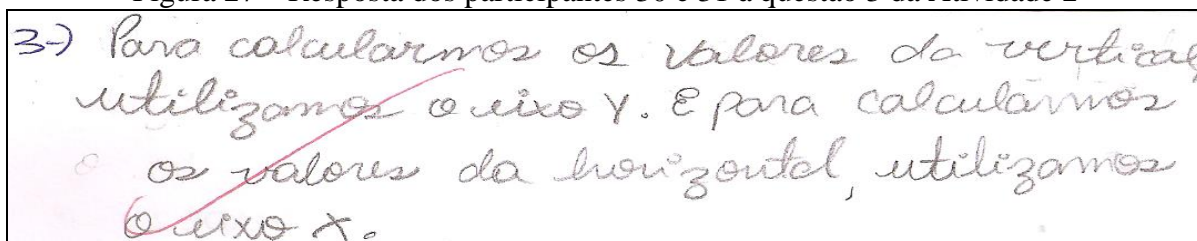 Figura 27 – Resposta dos participantes 30 e 31 à questão 3 da Atividade 2
3-) Para calcularmos os valores da vertical,
utilizamos o eixo Y. E para calcularmos
os valores da horizontal, utilizamos
o eixo X.